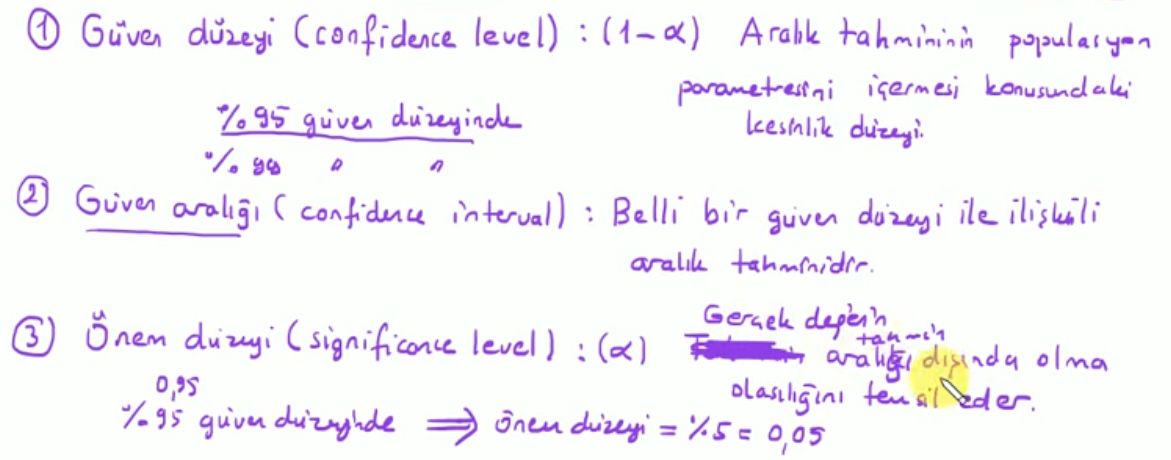 ① Güven düzeyi (confidence level) : (1-α) Aralık tahmininin populasyon
parametresini içermesi konusundaki
kesinlik düzeyi.
%95 güven düzeyinde
%99 " "
② Güven aralığı (confidence interval) : Belli bir güven düzeyi ile ilişkili
aralık tahminidir.
③ Önem düzeyi (significance level) : (α) Gerçek değerin
tahmin
aralığı dışında olma
olasılığını temsil eder.
0,95
%95 güven düzeyinde ⟹ önem düzeyi = %5 = 0,05